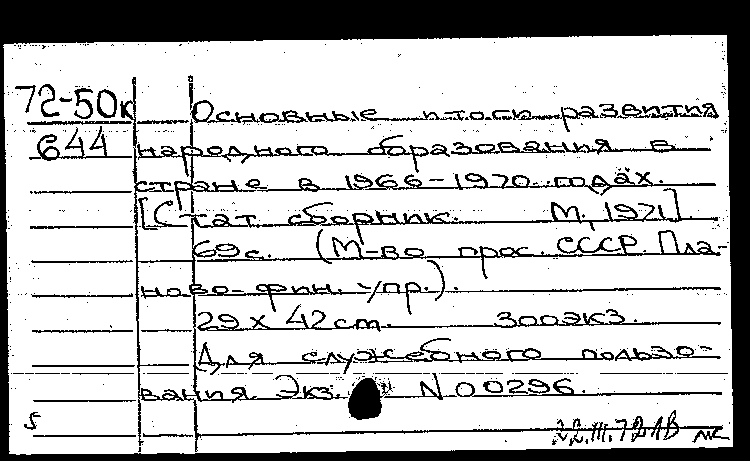 72-50к Основные итоги развития
644 народного образования в
стране в 1966-1970 годах.
[Стат сборник. М., 1971]
69 с. (М-во прос. СССР. Пла-
ново-фин. упр.).
29 x 42 cm. 300 экз.
Для служебного пользо-
вания. Экз. N 00296.
5
22.III.72